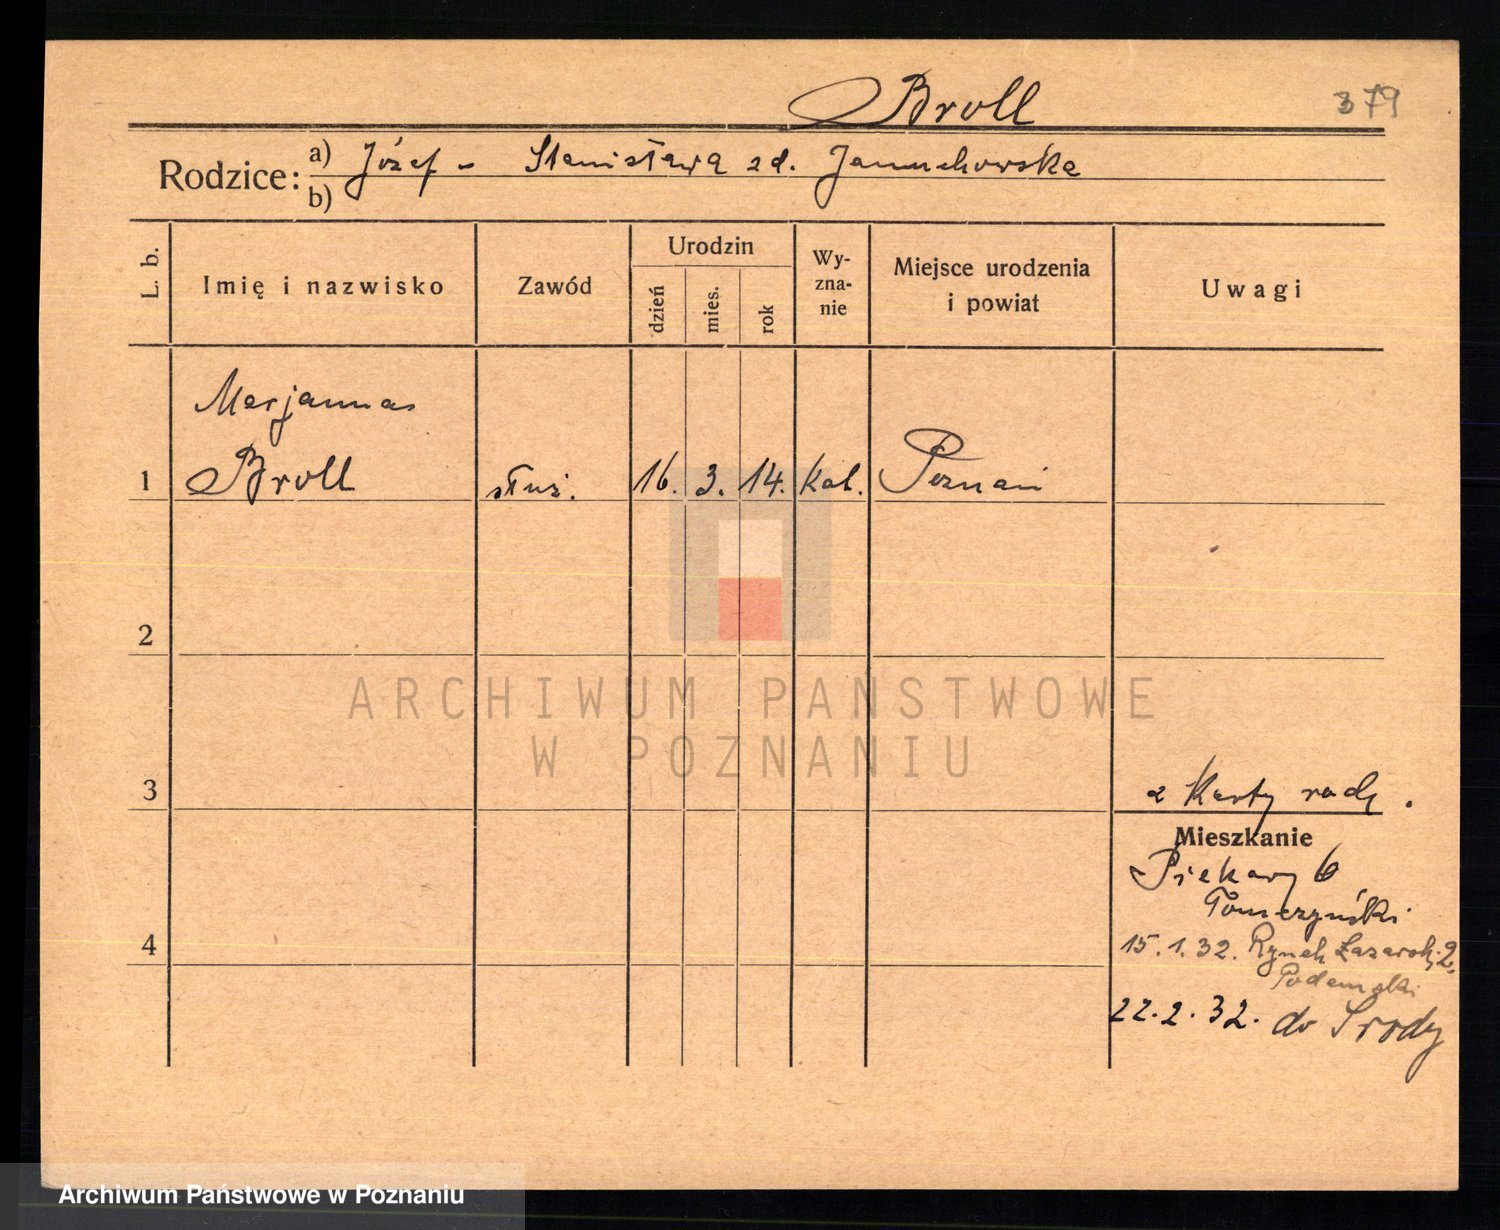 Broll
379
Rodzice: a) Józef - Stanisława zd. Januchowska
b)
L. b.
Imię i nazwisko
Zawód
Urodzin
dzień
mies.
rok
Wy-
zna-
nie
Miejsce urodzenia
i powiat
Uwagi
Marjanna
1 Broll służ. 16. 3. 14. Kat. Poznań
2
ARCHIWUM PAŃSTWOWE
W POZNANIU
3
z Karty rodz.
Mieszkanie
Piekary 6
Tomczyński
4
15.1.32. Rynek Łazarsk. 2.
Podemski
22.2.32. do Środy
Archiwum Państwowe w Poznaniu